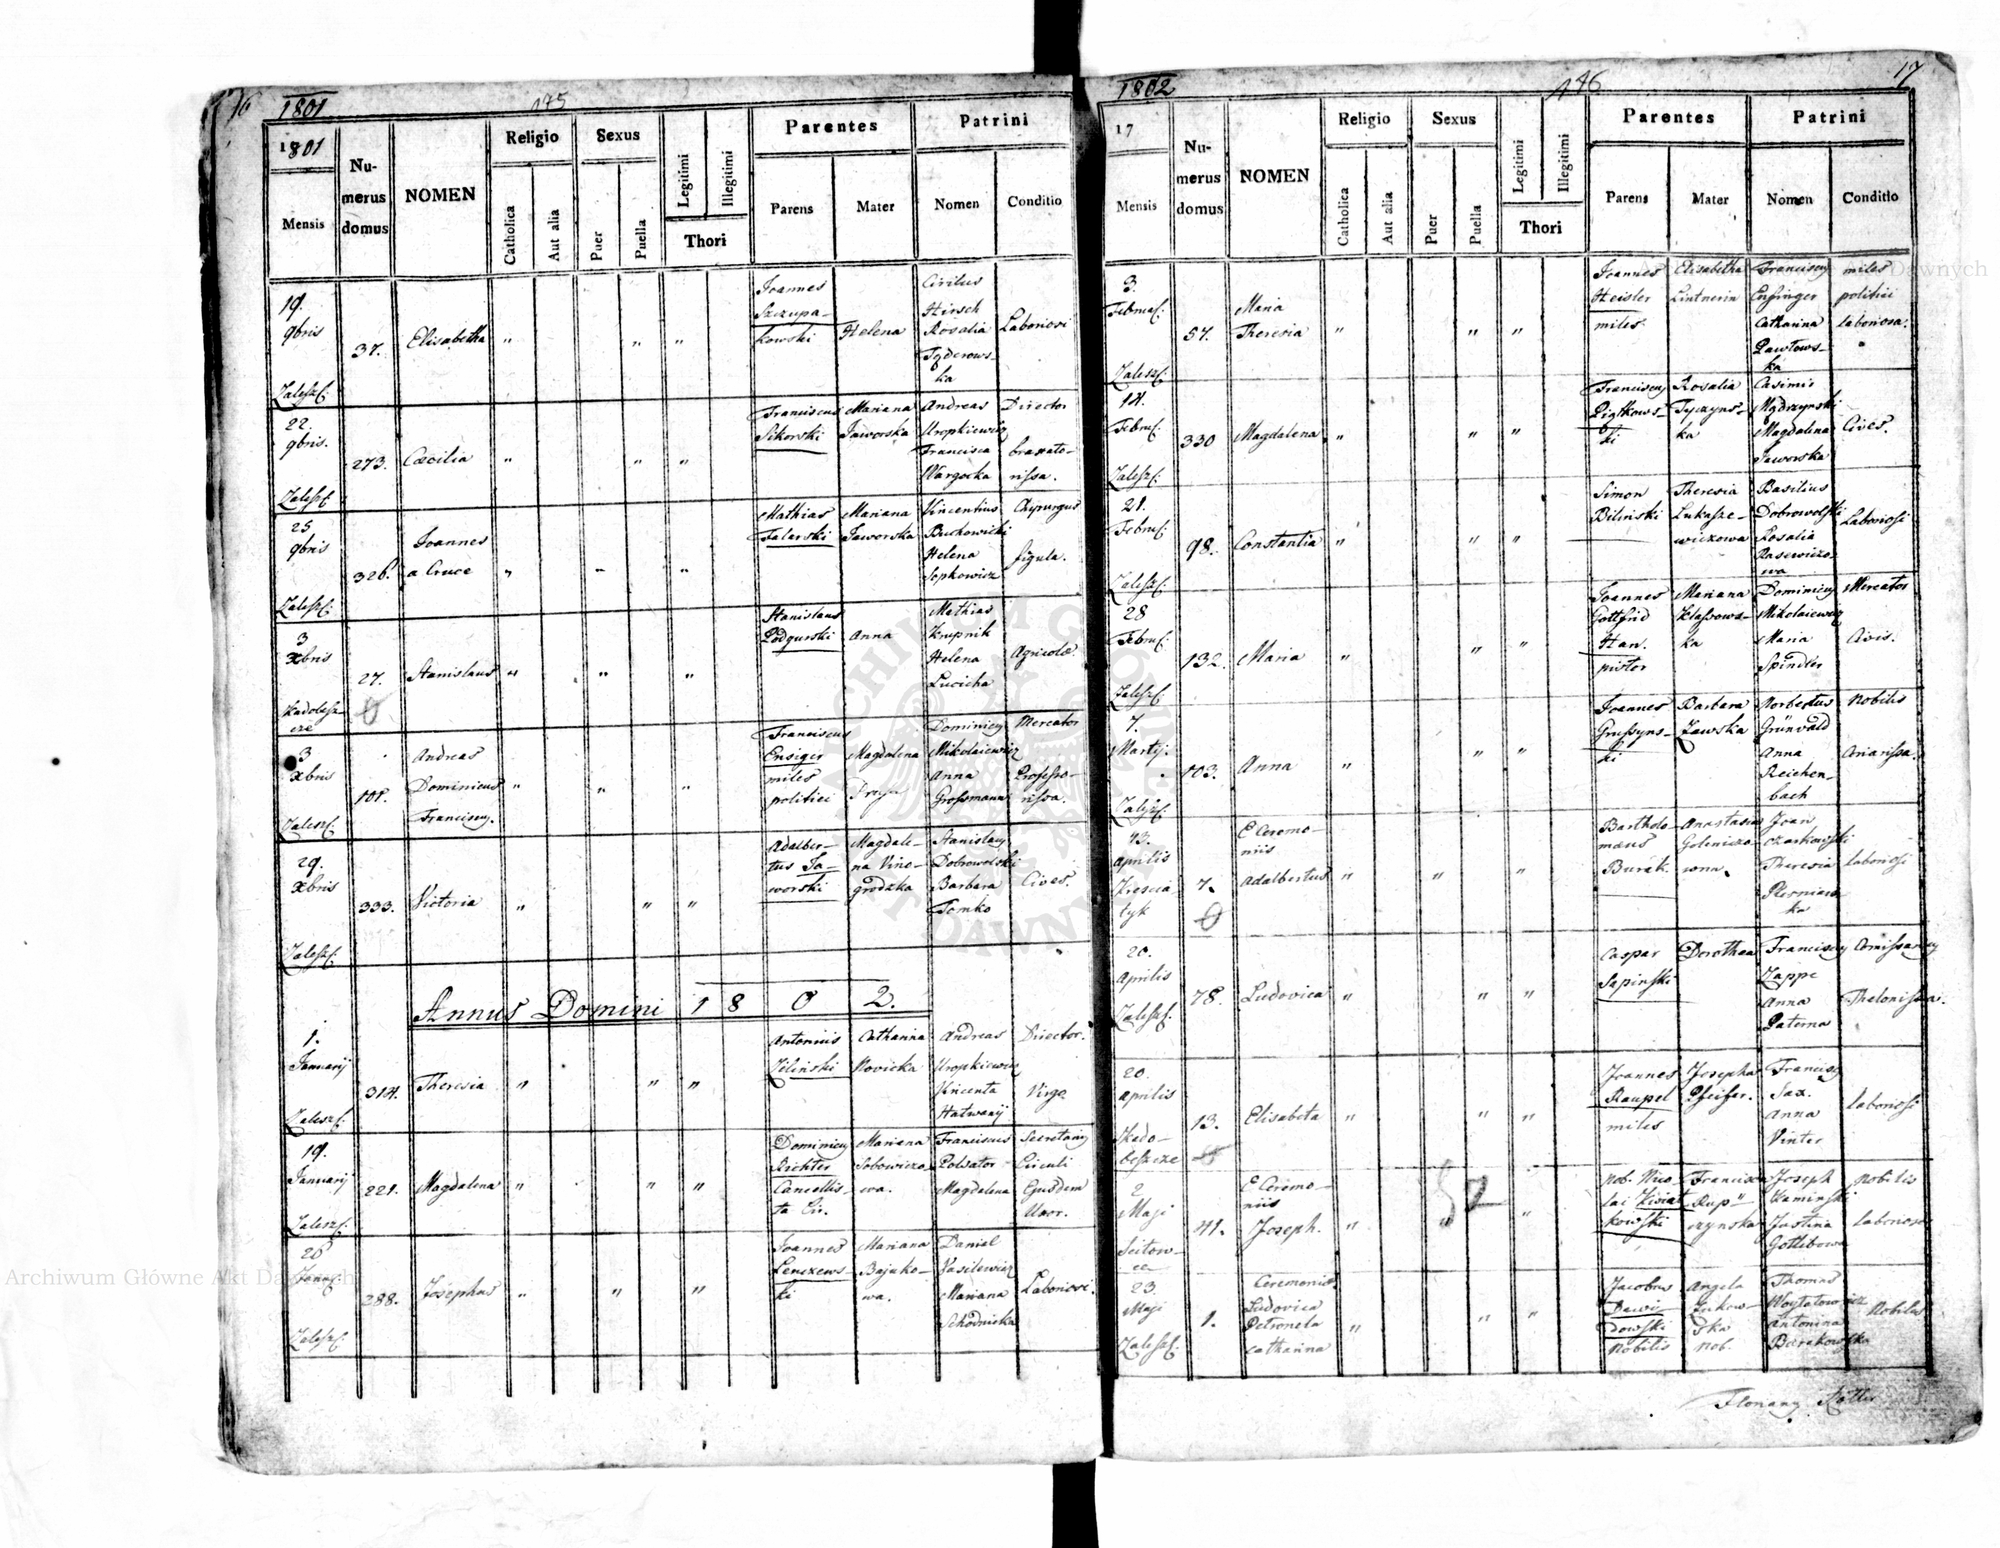 16 1801 145
1801
Mensis
Numerus domus
NOMEN
Religio
Catholica
Aut alia
Sexus
Puer
Puella
Legitimi
Illegitimi
Thori
Parentes
Parens
Mater
Patrini
Nomen
Conditio
19. 9bris Zalesz: 37. Elisabetha " " " Joannes Szczupakowski Helena Hirsch Rosalia Laboriosi
22. 9bris. Zalesz: 273. Cæcilia " " " Franciscus Sikorski Mariana Jaworska Andreas Uropkiewicz Francisca Wargocka Director
25 9bris Zalesz: 326. Joannes a Cruce " " " Mathias Talarski Mariana Jaworska Vincentius Buchowicki Helena Sepkowicz Chyrurgus figula.
3 xbris 27. Stanislaus " " " Stanislaus Podgurski Anna Mathias Krupnik Helena Lucicha Agricolæ
3 xbris Zalesz: 101. Andreas Dominicus Franciscq. " " " Franciscus Ensiger miles politici Magdalena Dominicq Mikolaiewicz Anna Grossmann Mercator Professorissa.
29. xbris Zalesz: 333. Victoria " " " Adalbertus Jaworski Magdalena Vinogrodzka Stanislaq Dobrowolski Barbara Tomko Cives.
Annus Domini 1 8 0 2.
1. Januarij Zalesz: 314. Theresia " " " Antonius Zilinski Catharina Novicka Andreas Uropkiewicz Vincenta Hatwanij Director. Virgo
19. Januarij Zalesz: 221. Magdalena " " " Dominicq Richter Cancellista Cir. Mariana Sobowiczowa. Franciscus Polsator Magdalena Secretariq Circuli Ejusdem Uxor.
26 Zalesz: 288. Josephus " " " Joannes Lenczewski Mariana Bajukowa. Daniel Vasilewicz Mariana Schodnicka Laboriosi.
1802 146 17
17
Mensis
Numerus domus
NOMEN
Religio
Catholica
Aut alia
Sexus
Puer
Puella
Legitimi
Illegitimi
Thori
Parentes
Parens
Mater
Patrini
Nomen
Conditio
3. Februar: Zalesz: 57. Maria Theresia " " " Joannes Heisler miles Elisabetha Lintnerin Franciscq Ensinger Catharina Pawlowska miles politici laboriosa.
14. Febru: Zalesz: 330 Magdalena " " " Franciscq Piątkowski Rosalia Tyczynska Casimir Mądrzynski Magdalena Jaworska Cives.
21. Febru: Zalesz: 98. Constantia " " " Simon Bilinski Theresia Lukaszewiczowa Basilius Dobrowolski Rosalia Laboriosi
28 Febru: Zalesz: 132. Maria " " " Joannes Gottfrid Han. pistor Mariana Klassowska Dominicq Mikolaiewicz Maria Spindler Mercator Civis.
7. Martij. Zalesz: 103. Anna " " " Joannes Grussynski Barbara Zawska Norbertus Grünvald Anna Reichenbach Nobilis
13. Aprilis 7. E Ceremoniis Adalbertus " " " Bartholomæus Burak. Anastasia Goleniczowna. Joan Czarkowski Theresia laboriosi
20. Aprilis Zalesz: 78. Ludovica " " " Caspar Sapinski Dorothea Franciscq Zappe Anna Paterna
20. Aprilis 13. Elisabeta " " " Joannes Raupel miles Josepha Pfeifer. Franciscq Sax. Anna Vinter laboriosi
2 Maji 41. E Ceremoniis Joseph. " " " Nob. Nicolai Kwiatkowski Francisca Joseph Kaminski Justina Gotlibowa Nobilis laboriosa
52
23. Maji Zalesz: 1. Ceremonis. Ludovica Petronela Catharina " " " Jacobus Dawidowski Nobilis Angela nob. Thomas Woytatowicz Antonina Nobiles
Florianq
Archiwum Główne Akt Dawnych
ARCHIWUM GŁÓWNE AKT DAWNYCH